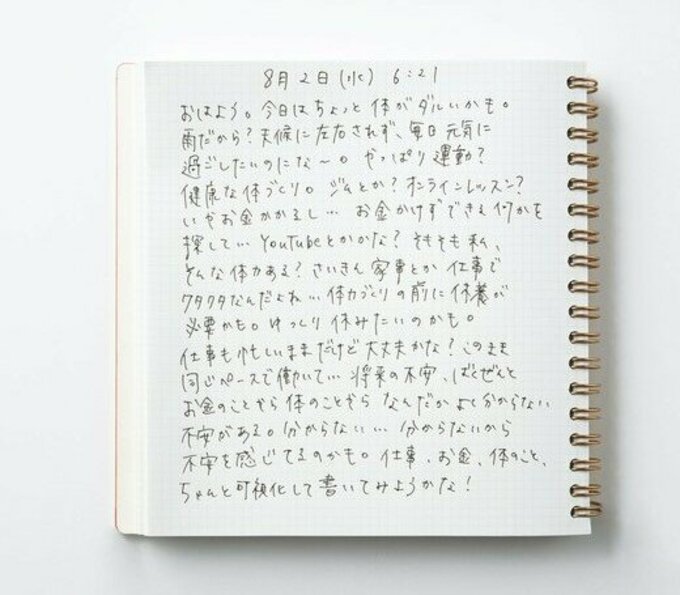 8月2日(水) 6:21
おはよう。今日はちょっと体がダルいかも。
雨だから?天候に左右されず、毎日元気に
過ごしたいのにな〜。やっぱり運動?
健康な体づくり。ジムとか?オンラインレッスン?
いやお金かかるし… お金かけずできる何かを
探して…YouTubeとかかな?そもそも私、
そんな体力ある?さいきん家事とか仕事で
クタクタなんだよね…体力づくりの前に休養が
必要かも。ゆっくり休みたいのかも。
仕事も忙しいままだけど大丈夫かな?このまま
同じペースで働いて…将来の不安、ばくぜんと
お金のことやら体のことやら なんだかよく分からない
不安がある。分からない…分からないから
不安を感じてるのかも。仕事、お金、体のこと、
ちゃんと可視化して書いてみようかな!